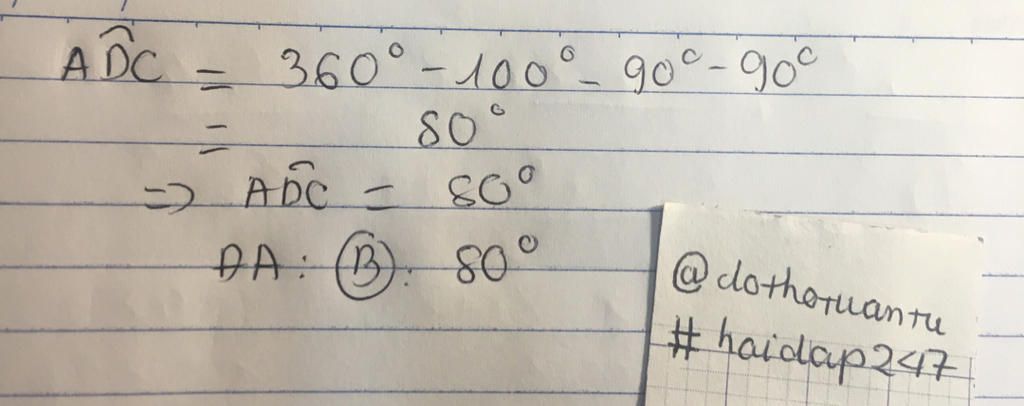 ADC = 360° - 100° - 90° - 90°
= 80°
=> ADC = 80°
ĐA: B: 80°
@dothotuantu
#haidap247